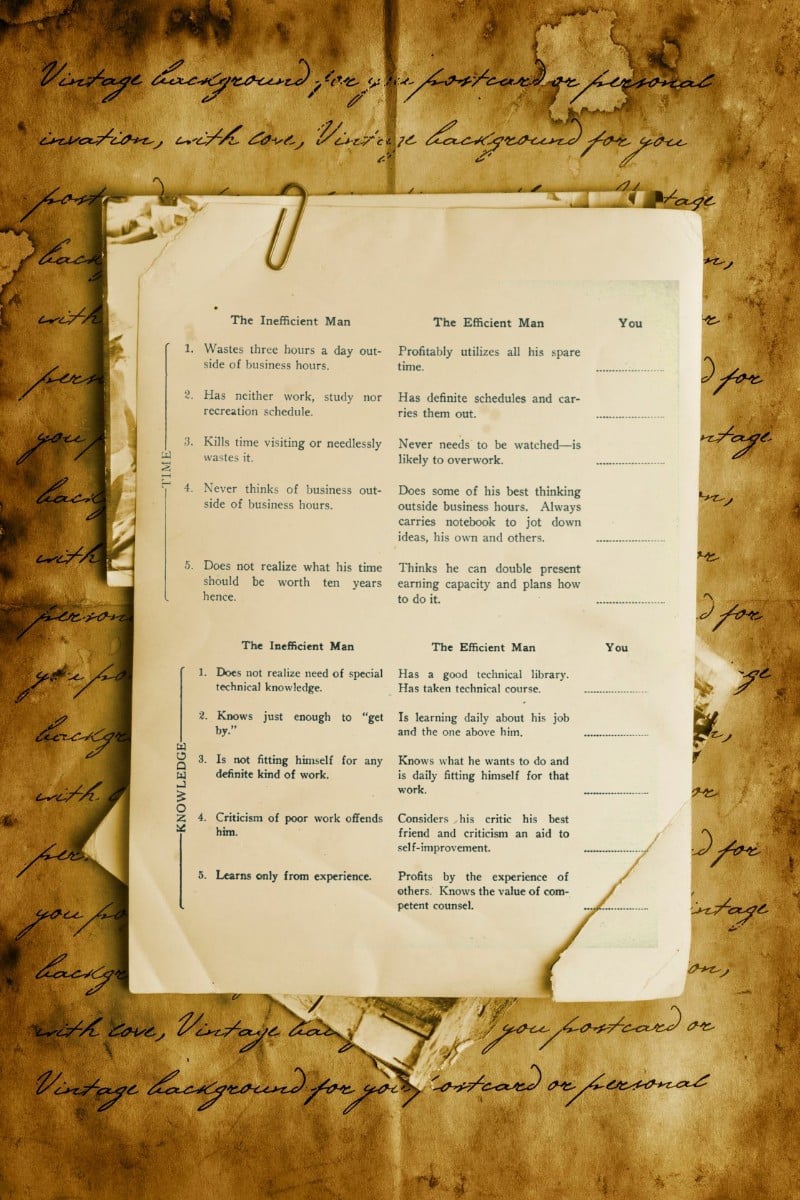 Vintage background for you postcard or personal
invation, with love, Vintage background for you
The Inefficient Man The Efficient Man You
TIME
1. Wastes three hours a day out-
side of business hours.
Profitably utilizes all his spare
time.
2. Has neither work, study nor
recreation schedule.
Has definite schedules and car-
ries them out.
3. Kills time visiting or needlessly
wastes it.
Never needs to be watched—is
likely to overwork.
4. Never thinks of business out-
side of business hours.
Does some of his best thinking
outside business hours. Always
carries notebook to jot down
ideas, his own and others.
5. Does not realize what his time
should be worth ten years
hence.
Thinks he can double present
earning capacity and plans how
to do it.
The Inefficient Man The Efficient Man You
KNOWLEDGE
1. Does not realize need of special
technical knowledge.
Has a good technical library.
Has taken technical course.
2. Knows just enough to “get
by.”
Is learning daily about his job
and the one above him.
3. Is not fitting himself for any
definite kind of work.
Knows what he wants to do and
is daily fitting himself for that
work.
4. Criticism of poor work offends
him.
Considers his critic his best
friend and criticism an aid to
self-improvement.
5. Learns only from experience.
Profits by the experience of
others. Knows the value of com-
petent counsel.
with love, Vintage you postcard or
Vintage background for you postcard or personal